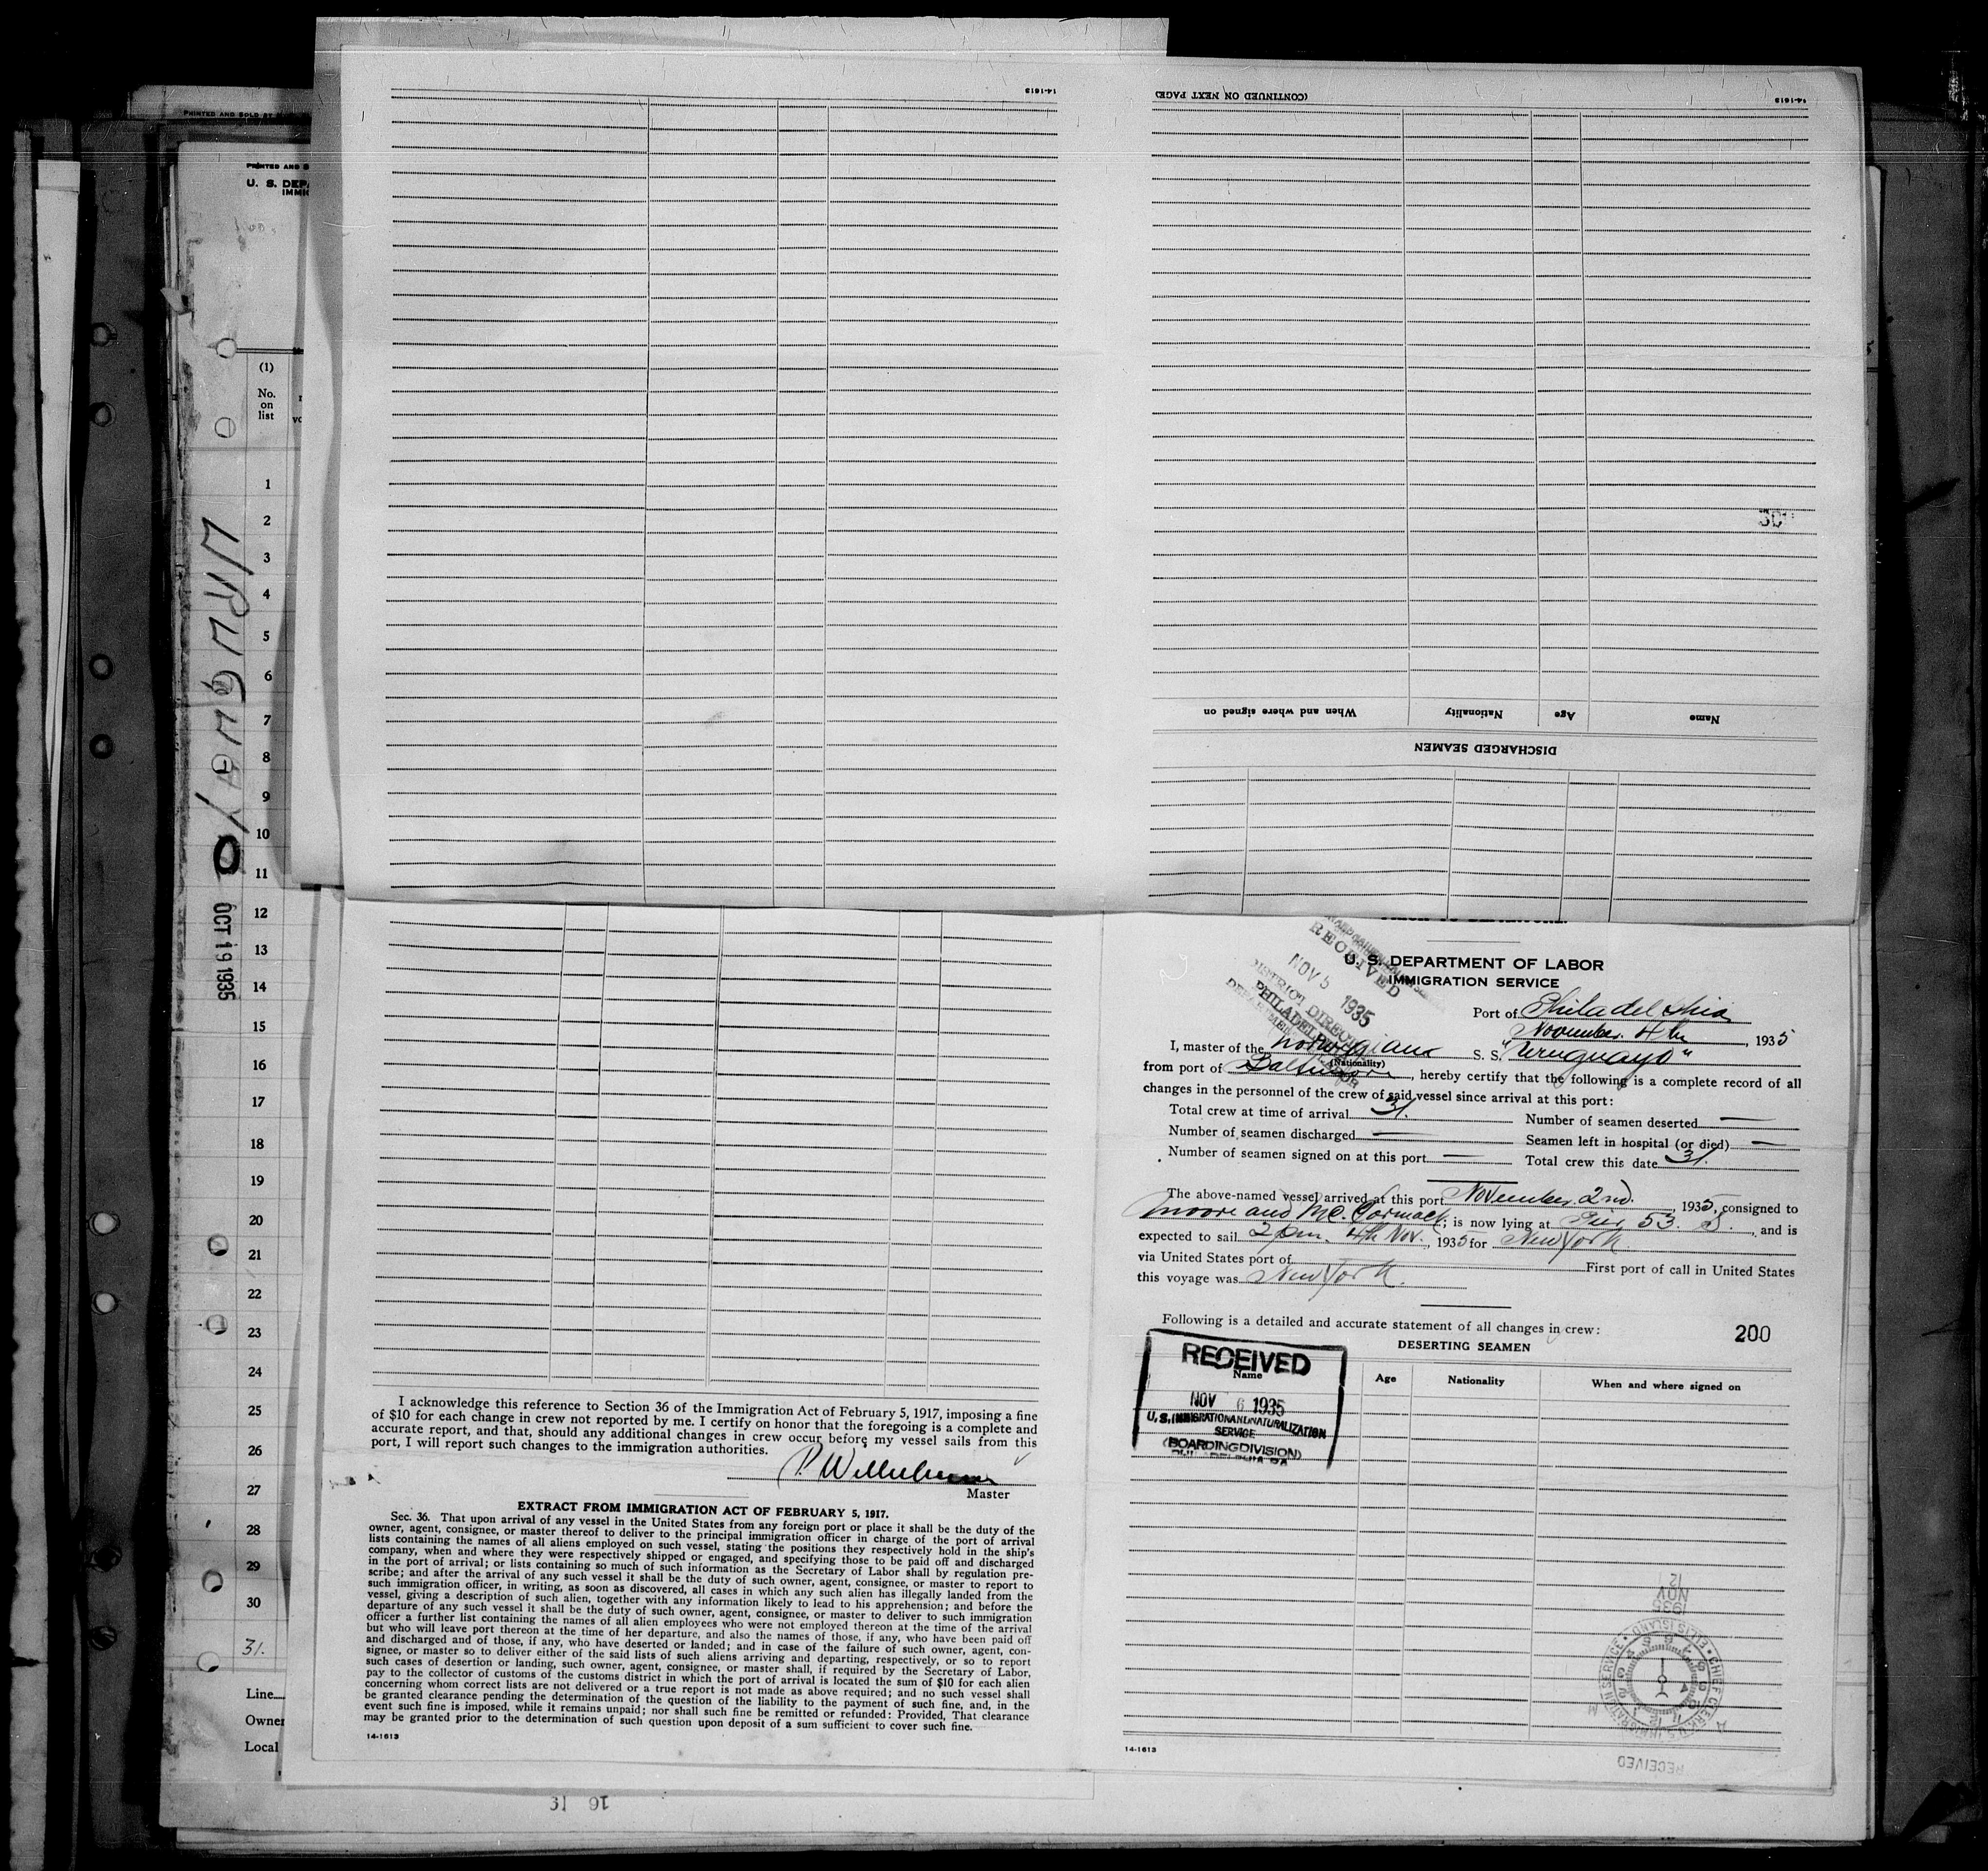 PRINTED AND SOLD BY
PRINTED AND S
U. S. DEPA
IMMIG
(1)
No.
on
list
1
2
3
4
5
6
7
8
9
10
11
12
13
14
15
16
17
18
19
20
21
22
23
24
25
26
27
28
29
30
31.
Line
Owner
Local
URUGUAYO
OCT 19 1935
14-1613
(CONTINUED ON NEXT PAGE)
14-1613
When and where signed on
Nationality
Age
Name
DISCHARGED SEAMEN
I acknowledge this reference to Section 36 of the Immigration Act of February 5, 1917, imposing a fine
of $10 for each change in crew not reported by me. I certify on honor that the foregoing is a complete and
accurate report, and that, should any additional changes in crew occur before my vessel sails from this
port, I will report such changes to the immigration authorities.
Master
EXTRACT FROM IMMIGRATION ACT OF FEBRUARY 5, 1917.
Sec. 36. That upon arrival of any vessel in the United States from any foreign port or place it shall be the duty of the
owner, agent, consignee, or master thereof to deliver to the principal immigration officer in charge of the port of arrival
lists containing the names of all aliens employed on such vessel, stating the positions they respectively hold in the ship's
company, when and where they were respectively shipped or engaged, and specifying those to be paid off and discharged
in the port of arrival; or lists containing so much of such information as the Secretary of Labor shall by regulation pre-
scribe; and after the arrival of any such vessel it shall be the duty of such owner, agent, consignee, or master to report to
such immigration officer, in writing, as soon as discovered, all cases in which any such alien has illegally landed from the
vessel, giving a description of such alien, together with any information likely to lead to his apprehension; and before the
departure of any such vessel it shall be the duty of such owner, agent, consignee, or master to deliver to such immigration
officer a further list containing the names of all alien employees who were not employed thereon at the time of the arrival
but who will leave port thereon at the time of her departure, and also the names of those, if any, who have been paid off
and discharged and of those, if any, who have deserted or landed; and in case of the failure of such owner, agent, con-
signee, or master so to deliver either of the said lists of such aliens arriving and departing, respectively, or so to report
such cases of desertion or landing, such owner, agent, consignee, or master shall, if required by the Secretary of Labor,
pay to the collector of customs of the customs district in which the port of arrival is located the sum of $10 for each alien
concerning whom correct lists are not delivered or a true report is not made as above required; and no such vessel shall
be granted clearance pending the determination of the question of the liability to the payment of such fine, and, in the
event such fine is imposed, while it remains unpaid; nor shall such fine be remitted or refunded: Provided, That clearance
may be granted prior to the determination of such question upon deposit of a sum sufficient to cover such fine.
14-1613
RECEIVED
NOV 5 1935
DISTRICT DIRECTOR
PHILADELPHIA
U. S. DEPARTMENT OF LABOR
IMMIGRATION SERVICE
Port of Philadelphia
November 4th, 1935
I, master of the Norwegian S. S. "Uruguayo"
(Nationality)
from port of Baltimore, hereby certify that the following is a complete record of all
changes in the personnel of the crew of said vessel since arrival at this port:
Total crew at time of arrival 31. Number of seamen deserted —
Number of seamen discharged — Seamen left in hospital (or died) —
Number of seamen signed on at this port — Total crew this date 31.
The above-named vessel arrived at this port November 2nd., 1935, consigned to
Moore and Mc. Cormack; is now lying at Pier 53. S., and is
expected to sail 2 pm. 4th Nov., 1935 for New York
via United States port of First port of call in United States
this voyage was New York.
Following is a detailed and accurate statement of all changes in crew:
200
DESERTING SEAMEN
Name
Age
Nationality
When and where signed on
RECEIVED
NOV 6 1935
U. S. IMMIGRATION AND NATURALIZATION
SERVICE
(BOARDING DIVISION)
PHILADELPHIA PA
12
NOV
1935
CHIEF CLERK U.S. IMMIGRATION SERVICE • ELLIS ISLAND
RECEIVED
14-1613